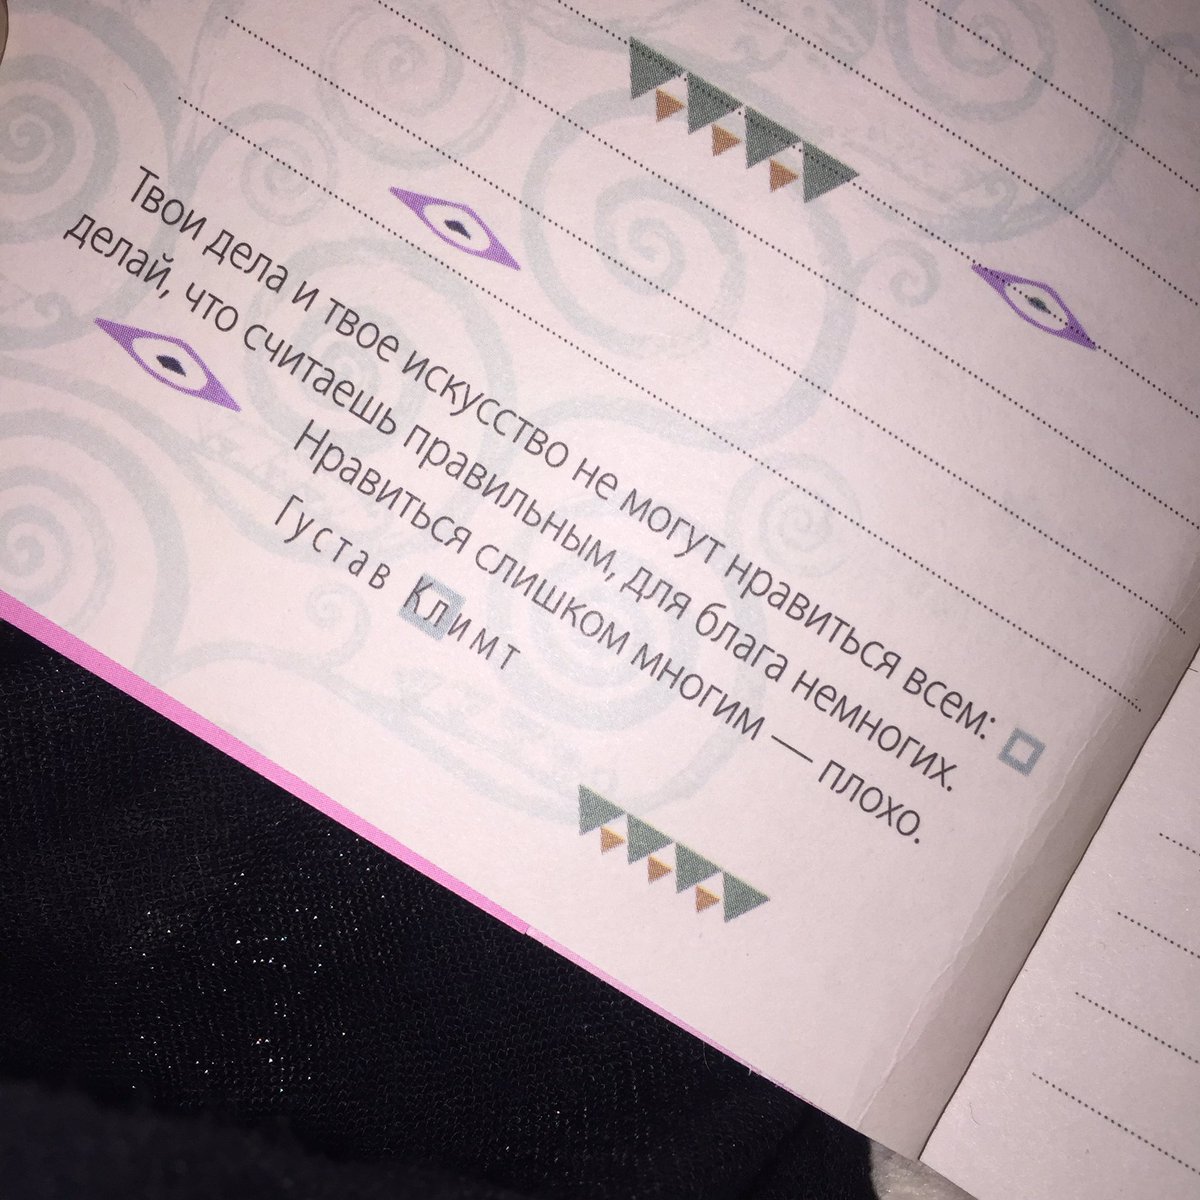 Твои дела и твое искусство не могут нравиться всем:
делай, что считаешь правильным, для блага немногих.
Нравиться слишком многим — плохо.
Густав Климт